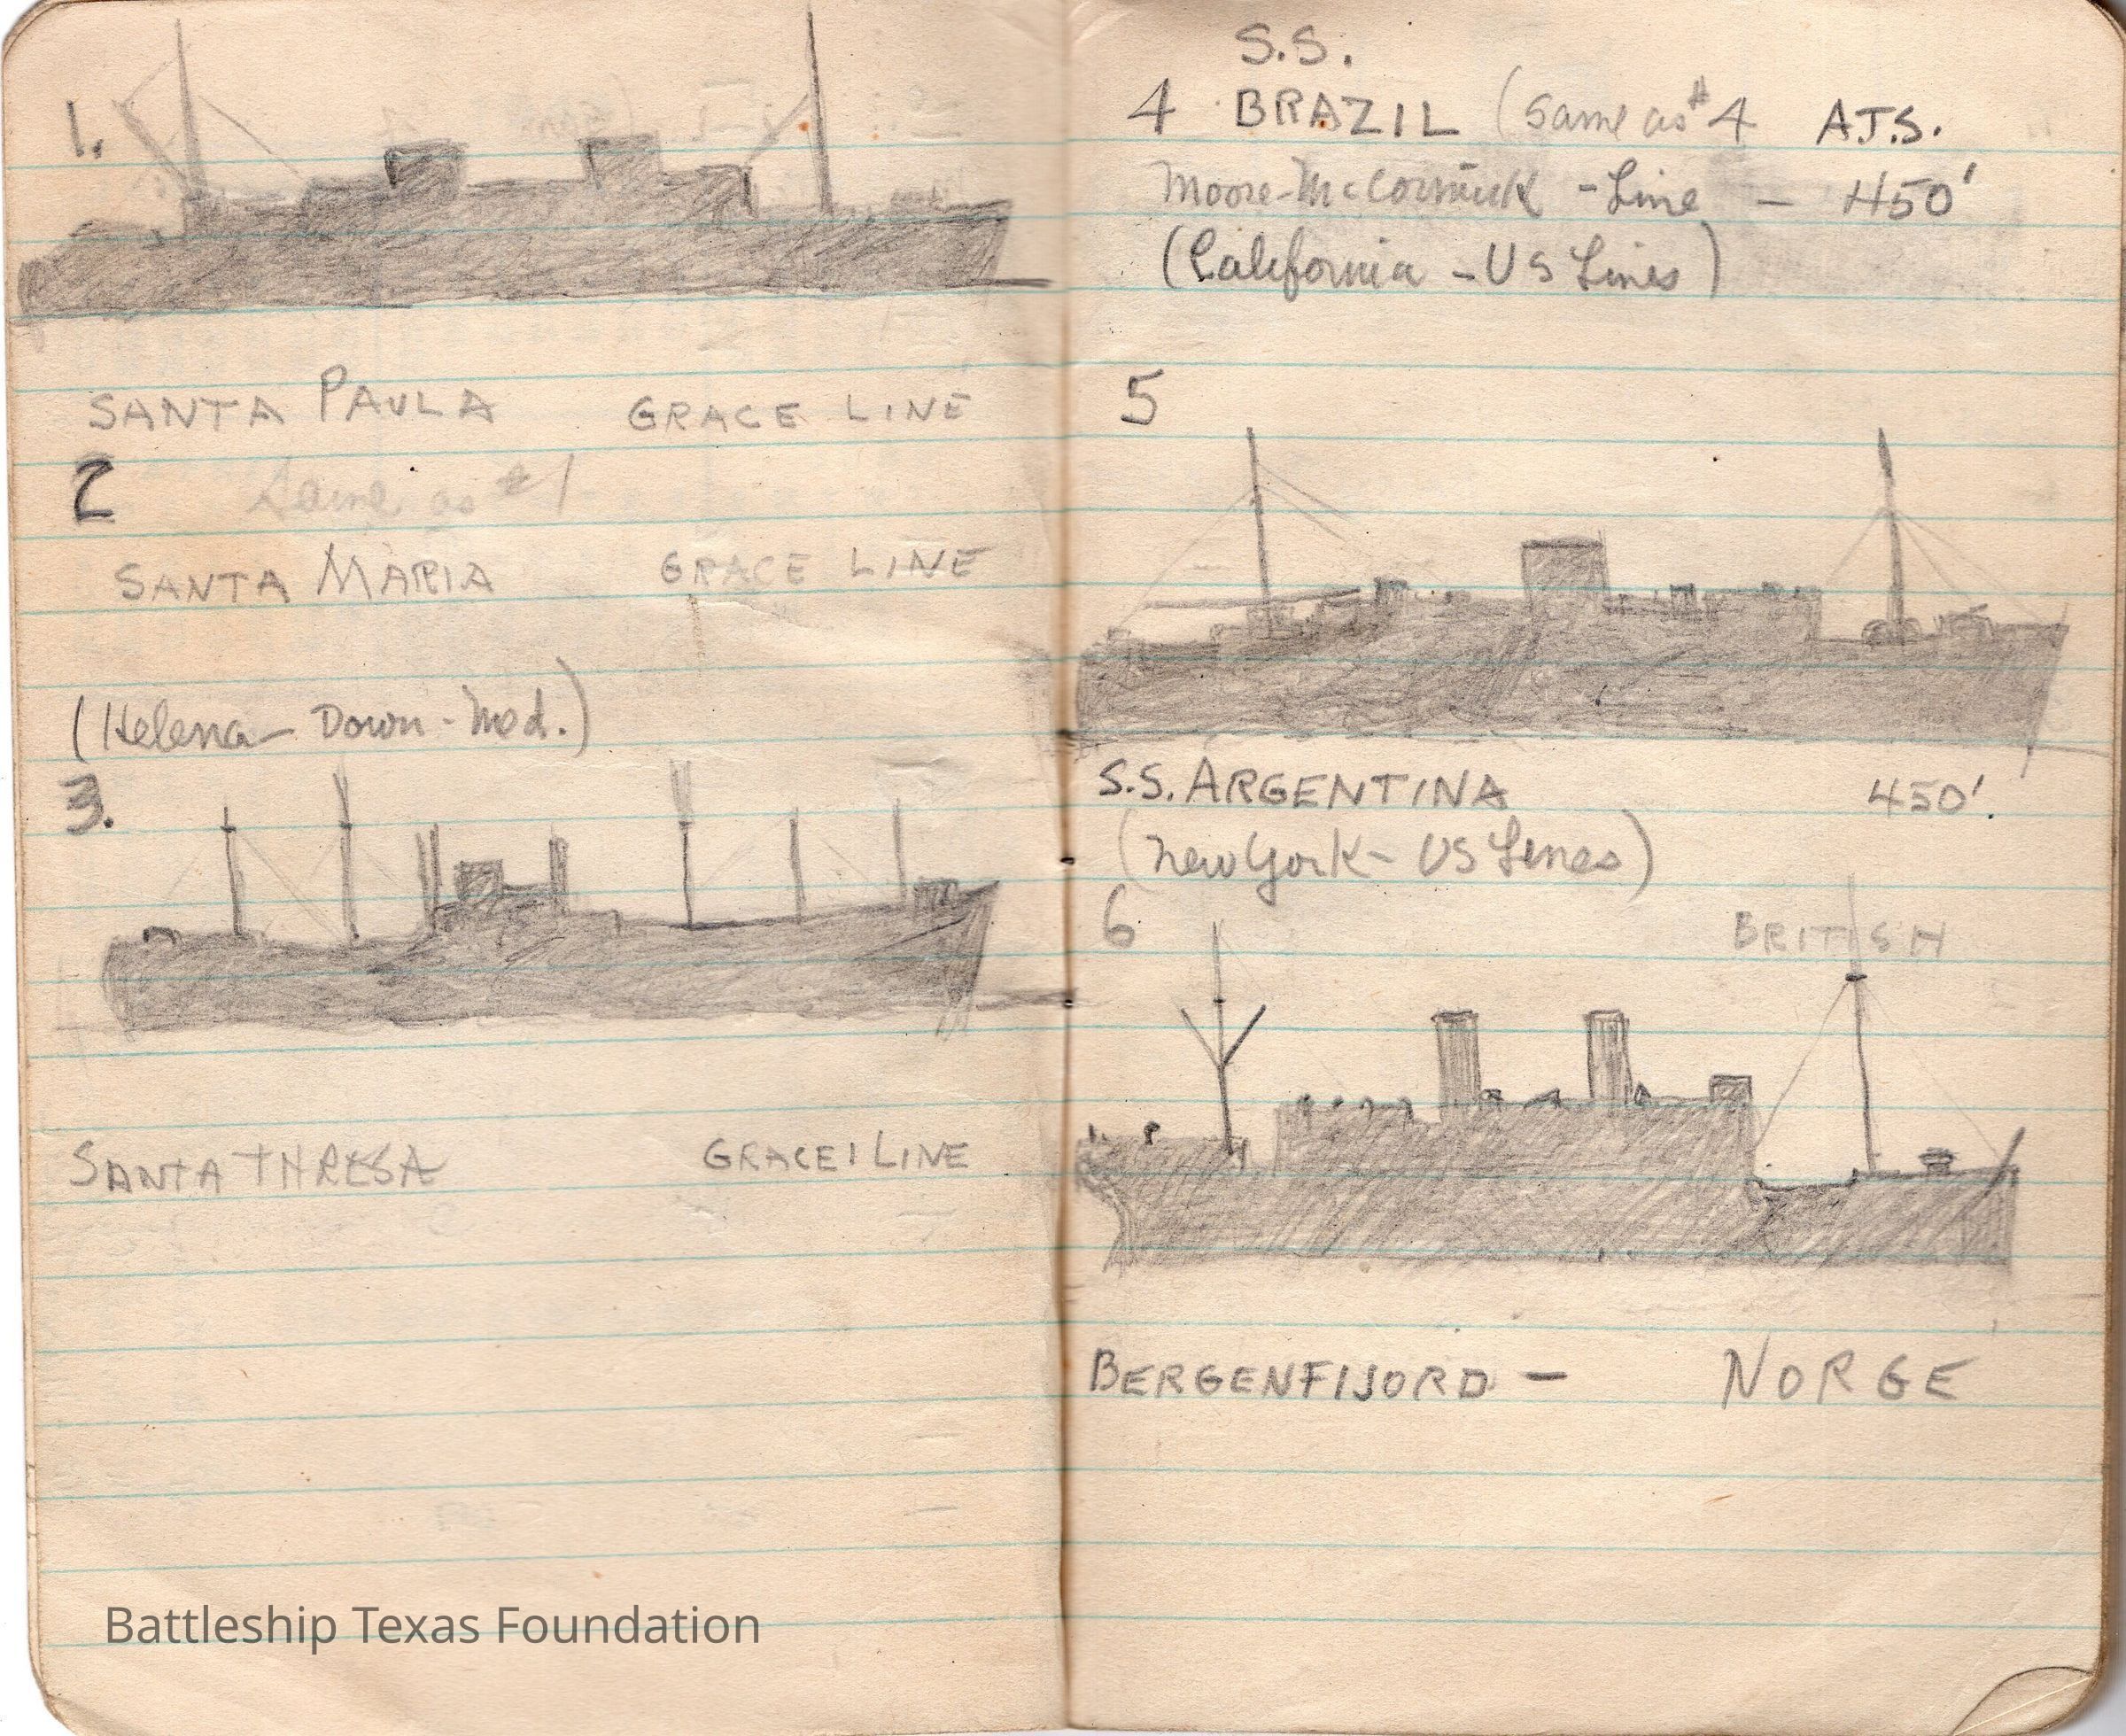 1.
SANTA PAULA GRACE LINE
2 Same as #1
SANTA MARIA GRACE LINE
(Helena - Down - Med.)
3.
SANTA THRESA GRACE LINE
Battleship Texas Foundation
S.S.
4 BRAZIL (same as #4 A.T.S.
Moore-McCormick - Line - 450'
(California - US Lines)
5
S.S. ARGENTINA 450'.
(New York - US Lines)
6 BRITISH
BERGENFIJORD - NORGE